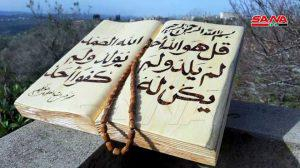 SANA
بسم الله الرحمن الرحيم
قل هو الله احد الله الصمد
لم يلد ولم يولد ولم
يكن له كفوا احد